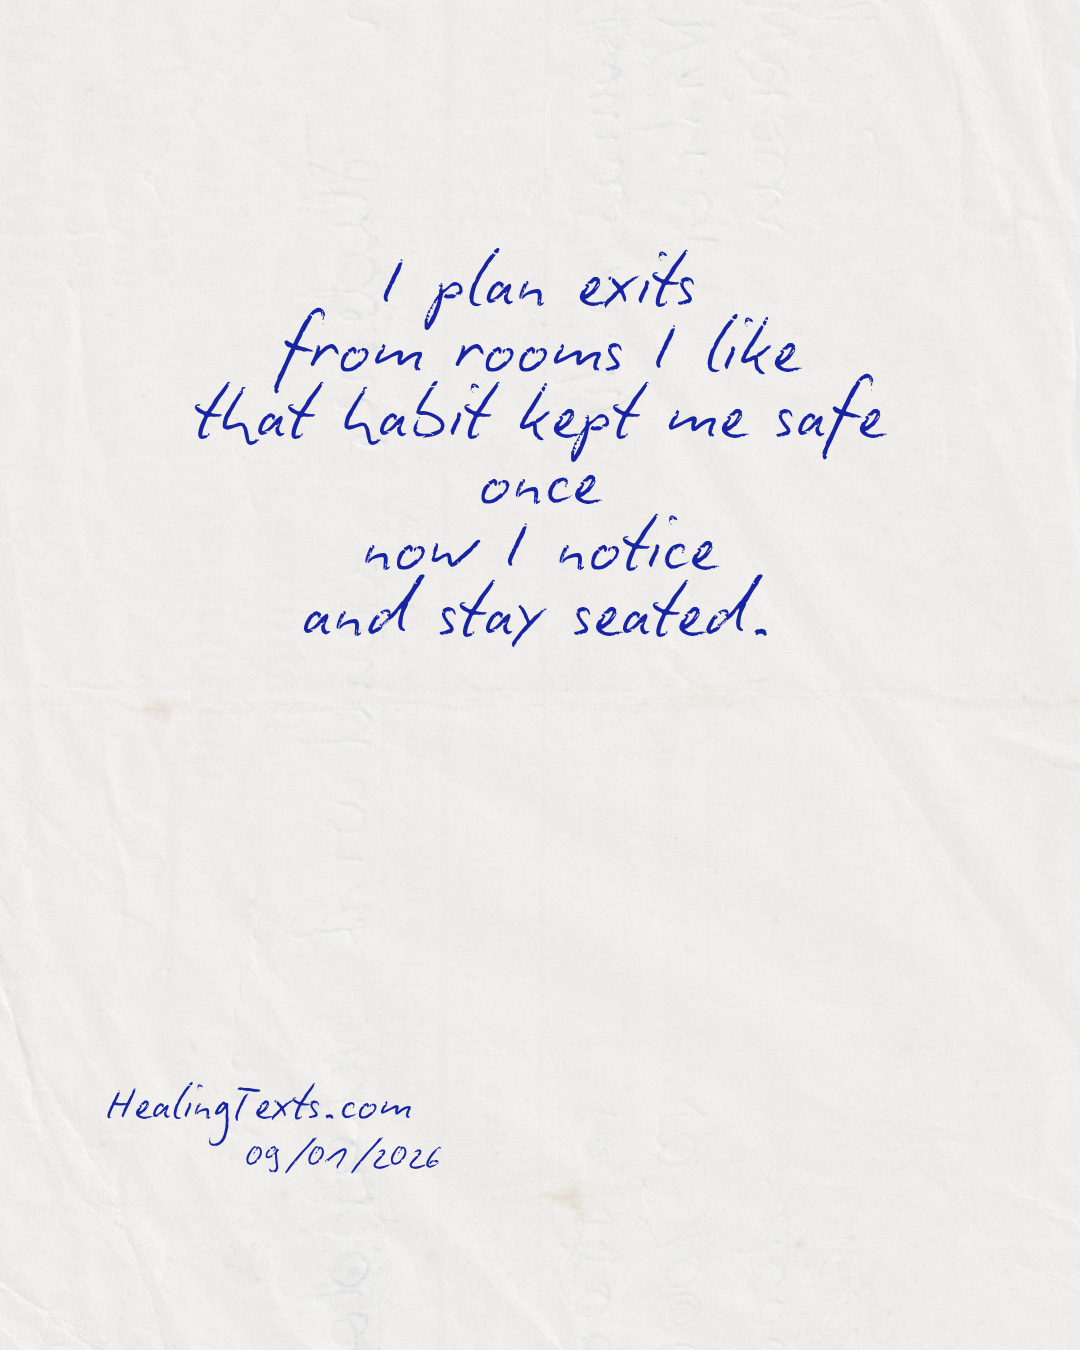 I plan exits
from rooms I like
that habit kept me safe
once
now I notice
and stay seated.
HealingTexts.com
09/01/2026